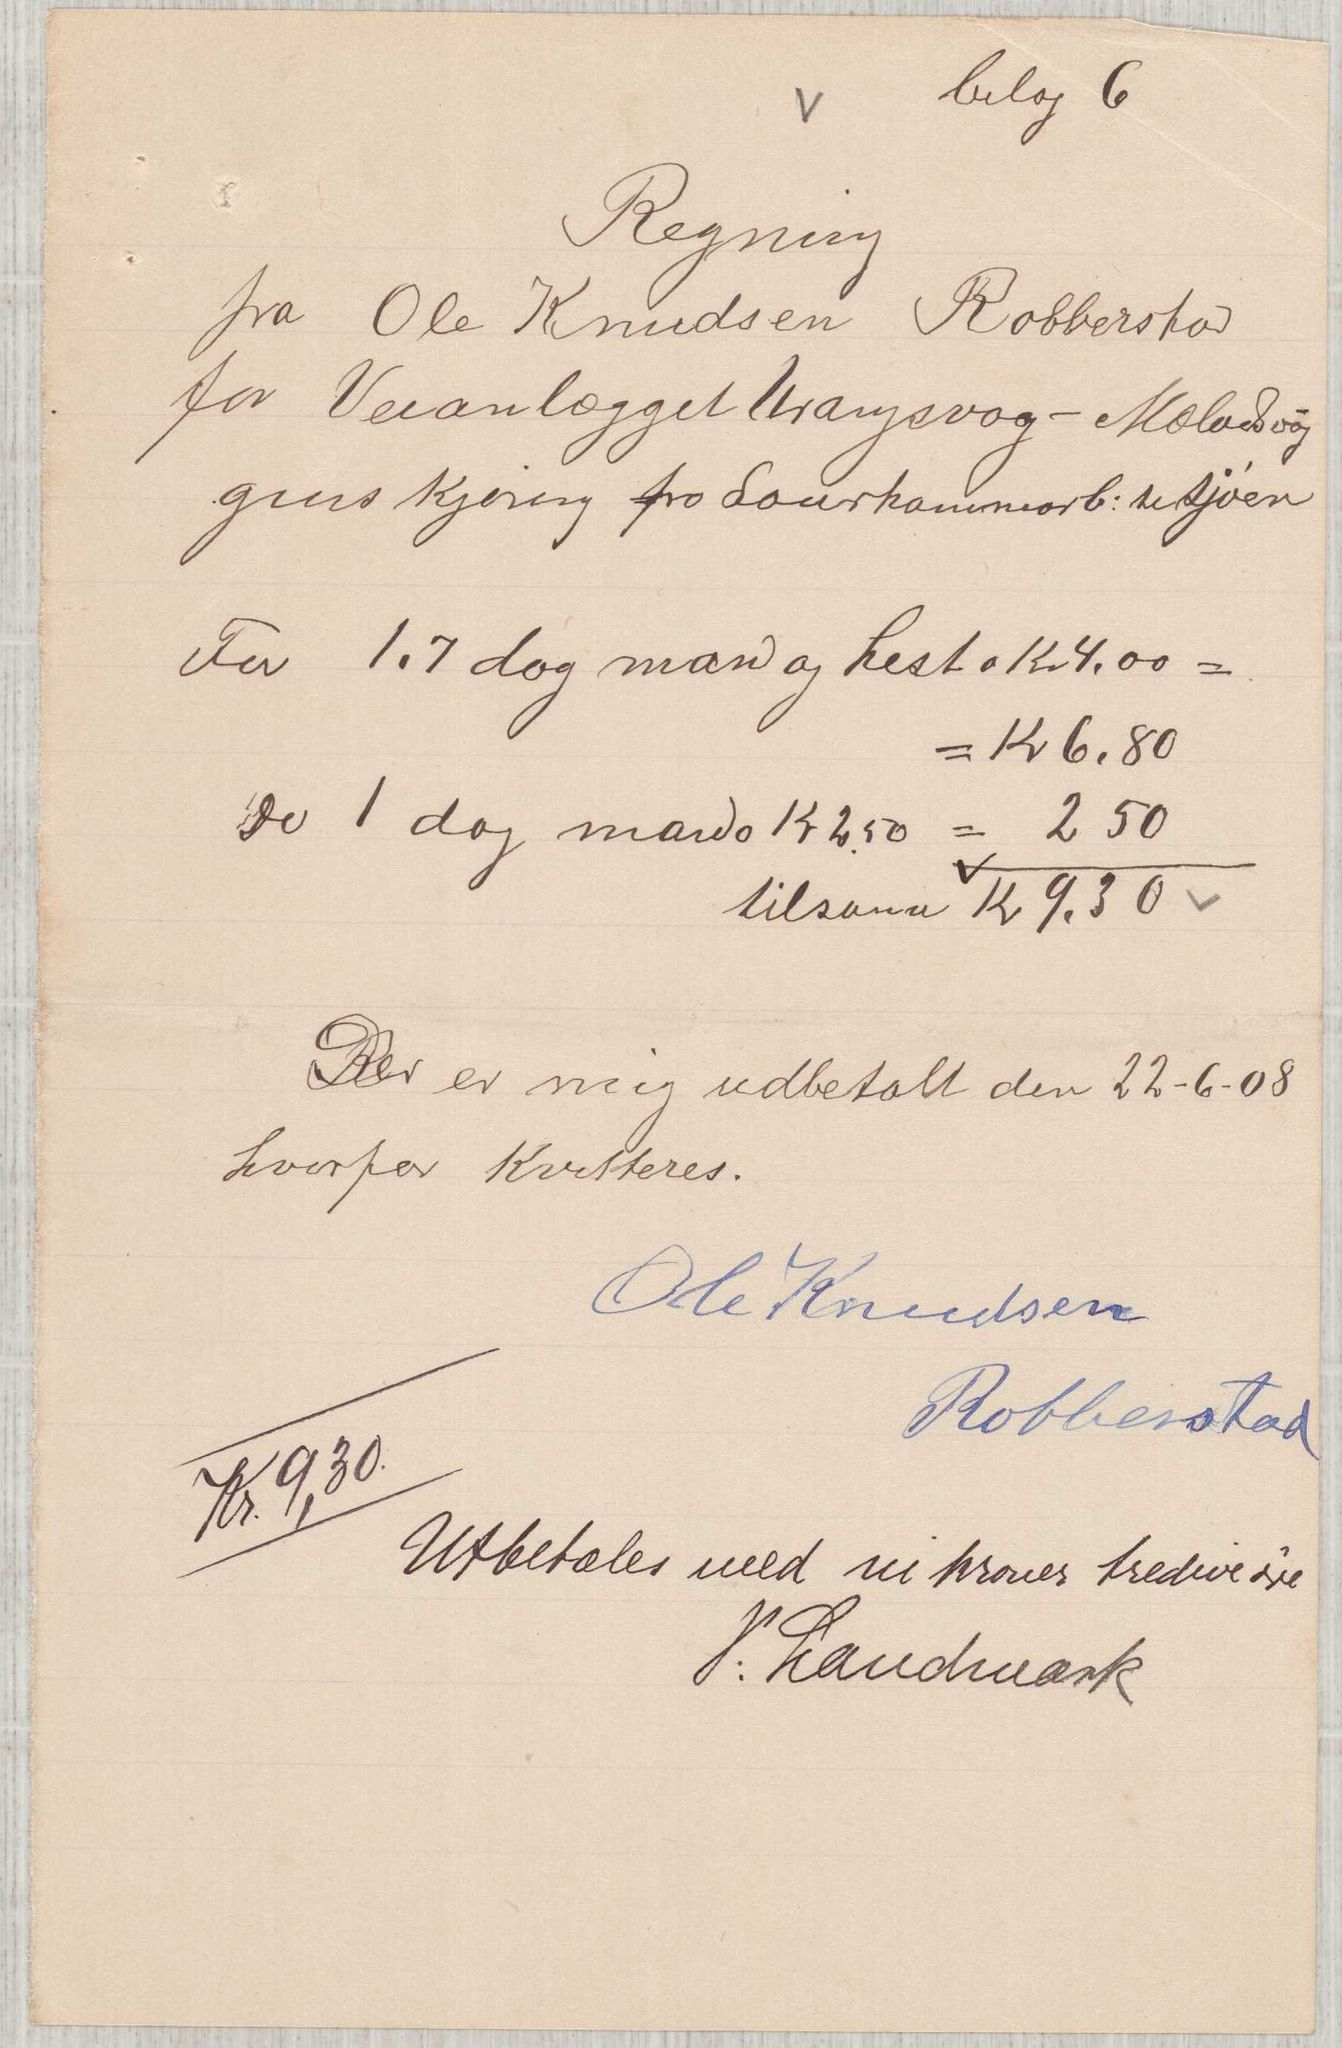 bilag 6
Regning
fra Ole Knudsen Robberstad
for Veianlægget Urangsvag - Mælandsvåg
grus kjøring fra Saurhammarb: til sjøen
For 1.7 dag mand og hest a Kr 4.00 =
= Kr 6.80
Do 1 dag mand a Kr 2.50 = 2 50
tilsam Kr 9.30
Der er mig udbetalt den 22-6-08
hvorfor kvitteres.
Ole Knudsen
Robberstad
Kr. 9,30.
Utbetales med ni kroner tredive øre
Landmark